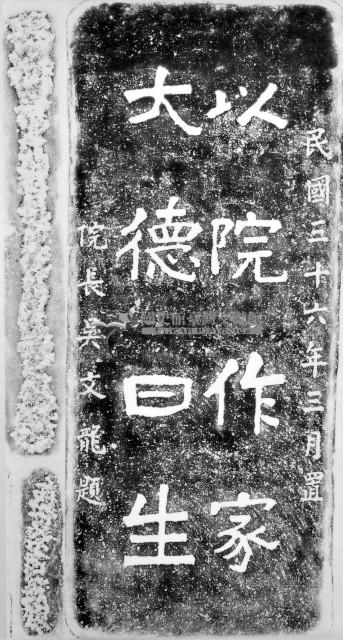 民國三十六年三月置
以院作家
大德曰生
院長吳文龍題